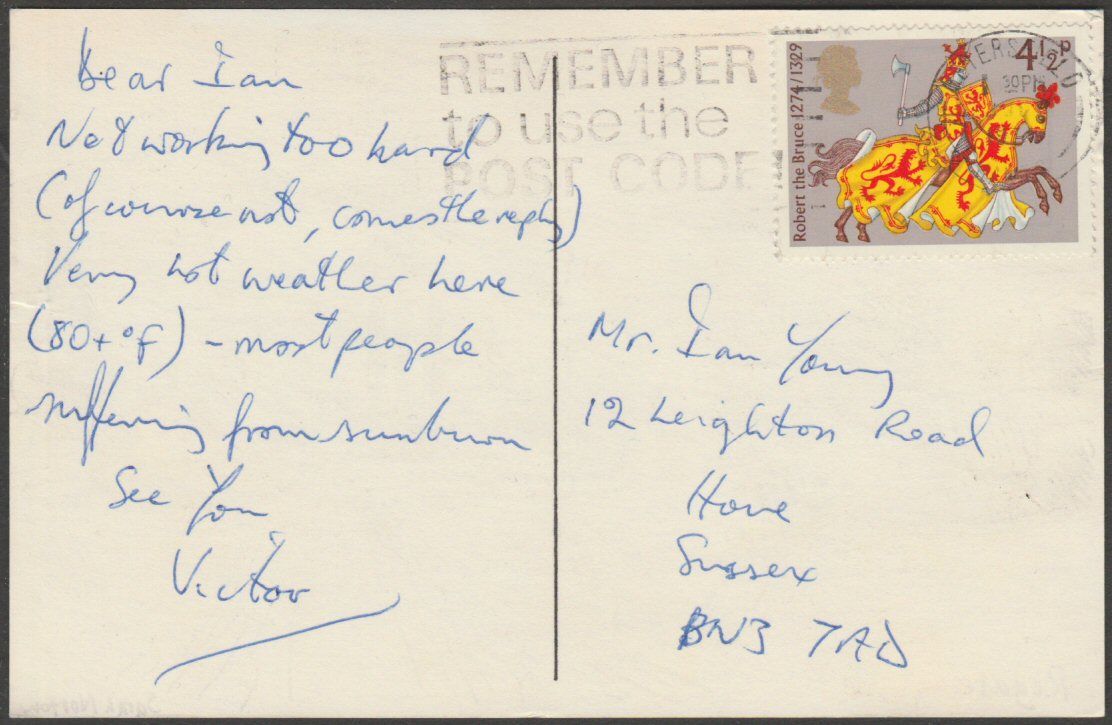 Dear Ian
Not working too hard
(of course not, comes the reply)
Very hot weather here
(80+°F) - most people
suffering from sunburn
See You
Victor
REMEMBER
to use the
POST CODE
4½P
Robert the Bruce 1274/1329
30PM
Mr. Ian Young
12 Leighton Road
Hove
Sussex
BN3 7AD